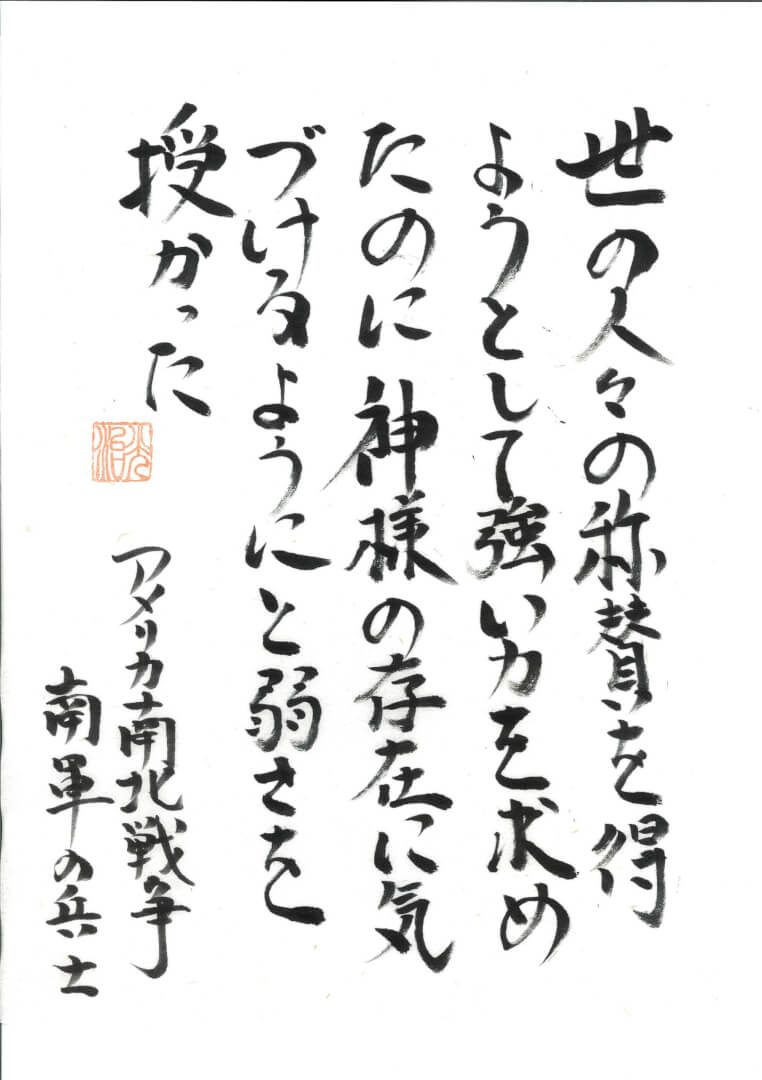 世の人々の称賛を得
ようとして強い力を求め
たのに神様の存在に気
づけるようにと弱さを
授かった
アメリカ南北戦争
南軍の兵士